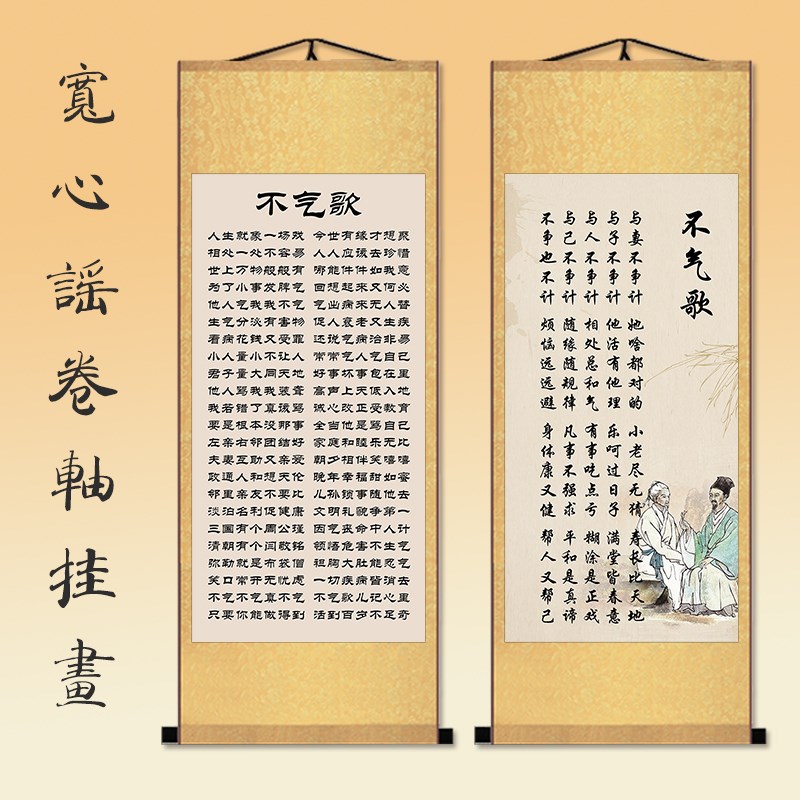 寬心謠卷軸挂畫
不气歌
人生就象一场戏 今世有缘才想聚
相处一处不容易 人人应诚去珍惜
世上万物般般有 哪能件件如我意
为了小事发脾气 回想起来又何必
他人气我我不气 气出病来无人替
生气分淡有害物 促人衰老又生疾
看病花钱又受罪 还说气病治非易
小人量小不让人 常常气人气自己
君子量大同天地 好事坏事包在里
他人骂我我装聋 高声上天低入地
我若错了真诚骂 诚心改他受教育
要是根本没那事 全当他是骂自己
左亲右邻团结好 家庭和睦乐无比
夫妻互助又亲爱 朝夕相伴笑嘻嘻
政通人和想天伦 晚年幸福甜如密
邻里亲友不要比 儿孙锁事随他去
淡泊名利促健康 文明礼貌争第一
三国有个周公瑾 因气丧命中人计
清朝有个闫敬铭 领悟危害不生气
弥勒就是布袋僧 祖胸大肚能忍气
笑口常开无忧虑 一切疾病皆消去
不气不气真不气 不气歌儿记心里
只要你能做得到 活到百岁不足奇
不气歌
与妻不争计 她啥都对的 小老尽无猜 寿长比天地
与子不争计 他活有他理 乐呵过日子 满堂皆春意
与人不争计 相处总和气 有事吃点亏 糊涂是正戏
与己不争计 随缘随规律 凡事不强求 平和是真谛
不争也不计 烦恼远远避 身体康又健 帮人又帮己